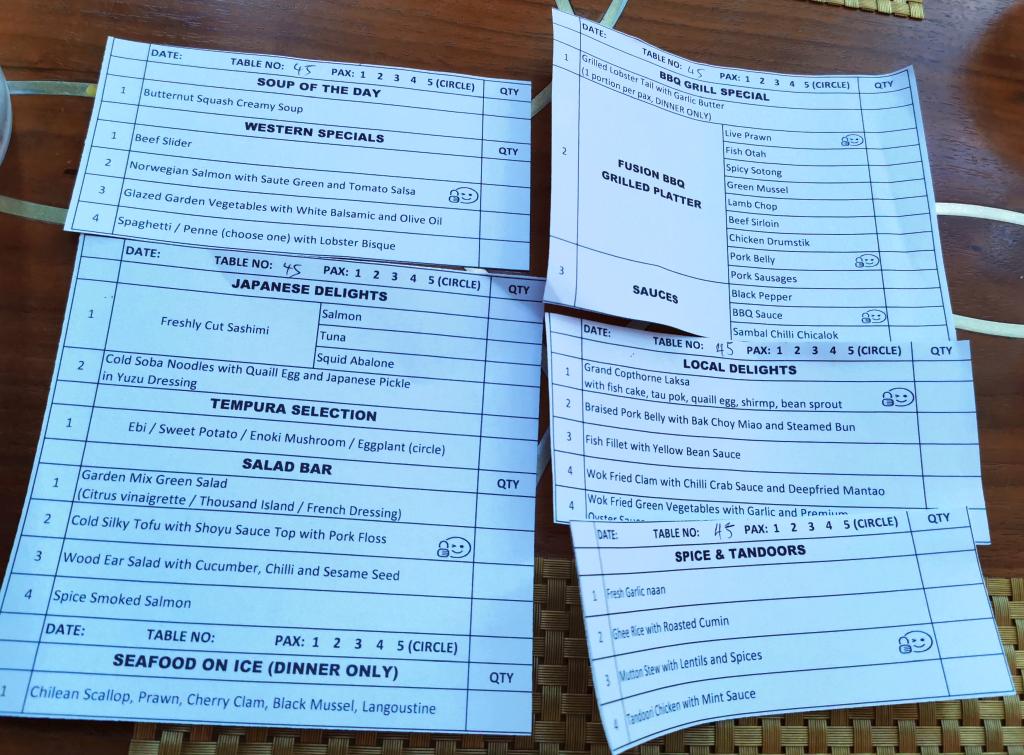 DATE: TABLE NO: 45 PAX: 1 2 3 4 5 (CIRCLE) QTY
SOUP OF THE DAY
1 Butternut Squash Creamy Soup
WESTERN SPECIALS QTY
1 Beef Slider
2 Norwegian Salmon with Saute Green and Tomato Salsa
3 Glazed Garden Vegetables with White Balsamic and Olive Oil
4 Spaghetti / Penne (choose one) with Lobster Bisque
DATE: TABLE NO: 45 PAX: 1 2 3 4 5 (CIRCLE) QTY
JAPANESE DELIGHTS
1 Freshly Cut Sashimi
Salmon
Tuna
Squid Abalone
2 Cold Soba Noodles with Quaill Egg and Japanese Pickle
in Yuzu Dressing
TEMPURA SELECTION
1 Ebi / Sweet Potato / Enoki Mushroom / Eggplant (circle)
SALAD BAR QTY
1 Garden Mix Green Salad
(Citrus vinaigrette / Thousand Island / French Dressing)
2 Cold Silky Tofu with Shoyu Sauce Top with Pork Floss
3 Wood Ear Salad with Cucumber, Chilli and Sesame Seed
4 Spice Smoked Salmon
DATE: TABLE NO: PAX: 1 2 3 4 5 (CIRCLE)
SEAFOOD ON ICE (DINNER ONLY) QTY
1 Chilean Scallop, Prawn, Cherry Clam, Black Mussel, Langoustine
DATE: TABLE NO: 45 PAX: 1 2 3 4 5 (CIRCLE) QTY
BBQ GRILL SPECIAL
1 Grilled Lobster Tail with Garlic Butter
(1 portion per pax, DINNER ONLY)
2 FUSION BBQ
GRILLED PLATTER
Live Prawn
Fish Otah
Spicy Sotong
Green Mussel
Lamb Chop
Beef Sirloin
Chicken Drumstik
Pork Belly
Pork Sausages
3 SAUCES
Black Pepper
BBQ Sauce
Sambal Chilli Chicalok
DATE: TABLE NO: 45 PAX: 1 2 3 4 5 (CIRCLE) QTY
LOCAL DELIGHTS
1 Grand Copthorne Laksa
with fish cake, tau pok, quaill egg, shirmp, bean sprout
2 Braised Pork Belly with Bak Choy Miao and Steamed Bun
3 Fish Fillet with Yellow Bean Sauce
4 Wok Fried Clam with Chilli Crab Sauce and Deepfried Mantao
4 Wok Fried Green Vegetables with Garlic and Premium
Oyster Sauce
DATE: TABLE NO: 45 PAX: 1 2 3 4 5 (CIRCLE) QTY
SPICE & TANDOORS
1 Fresh Garlic naan
2 Ghee Rice with Roasted Cumin
3 Mutton Stew with Lentils and Spices
4 Tandoori Chicken with Mint Sauce